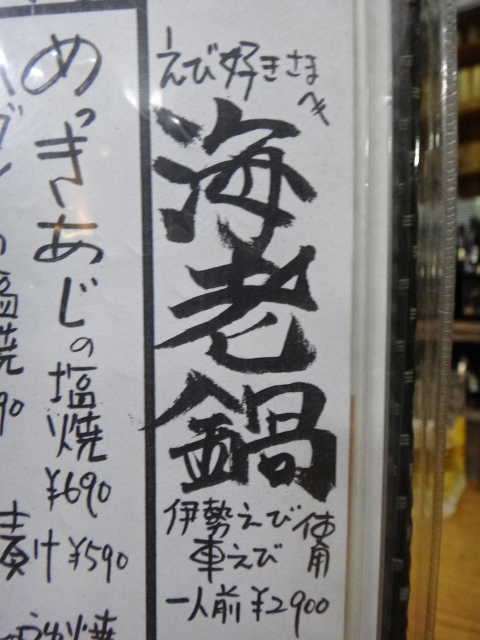 えび好きさまへ
海老鍋
伊勢えび
車えび
使用
一人前 ¥2900
めっきあじの塩焼
¥690
汁 ¥590
の塩焼
90
焼